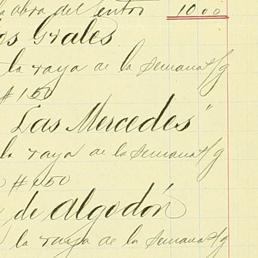 la obra del sentor 10.00
os Grales
la raya de la semana s/g
#150
Las Mercedes"
la raya de la semana s/g
#50
de algodón
la raya de la semana s/g